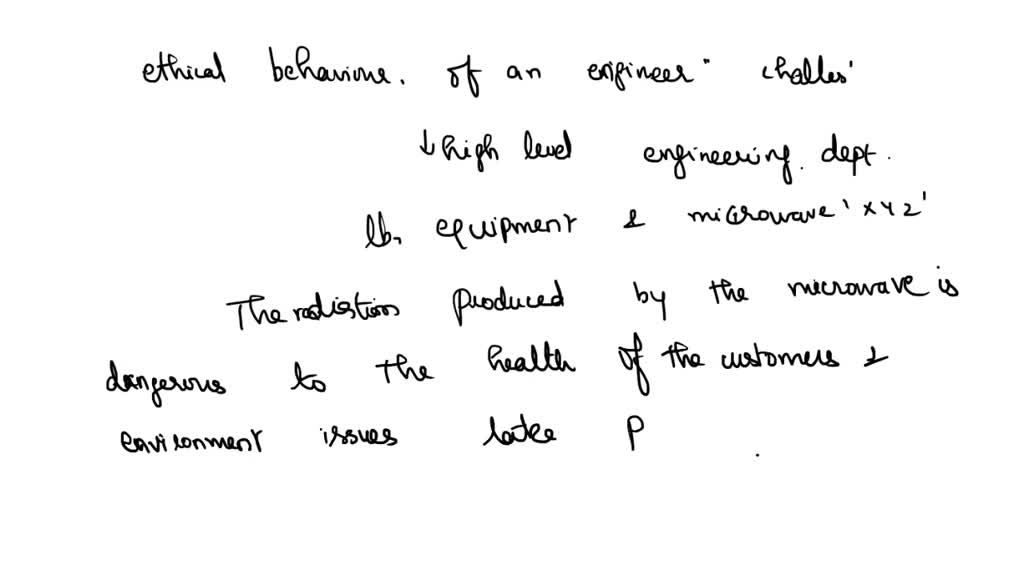 ethical behaviour. of an engineer "challes'
↓ high level engineering. dept.
lb, equipment & microwave 'XYZ'
The radiation produced by the microwave is
dangerous to the health of the customers &
environment issues late P